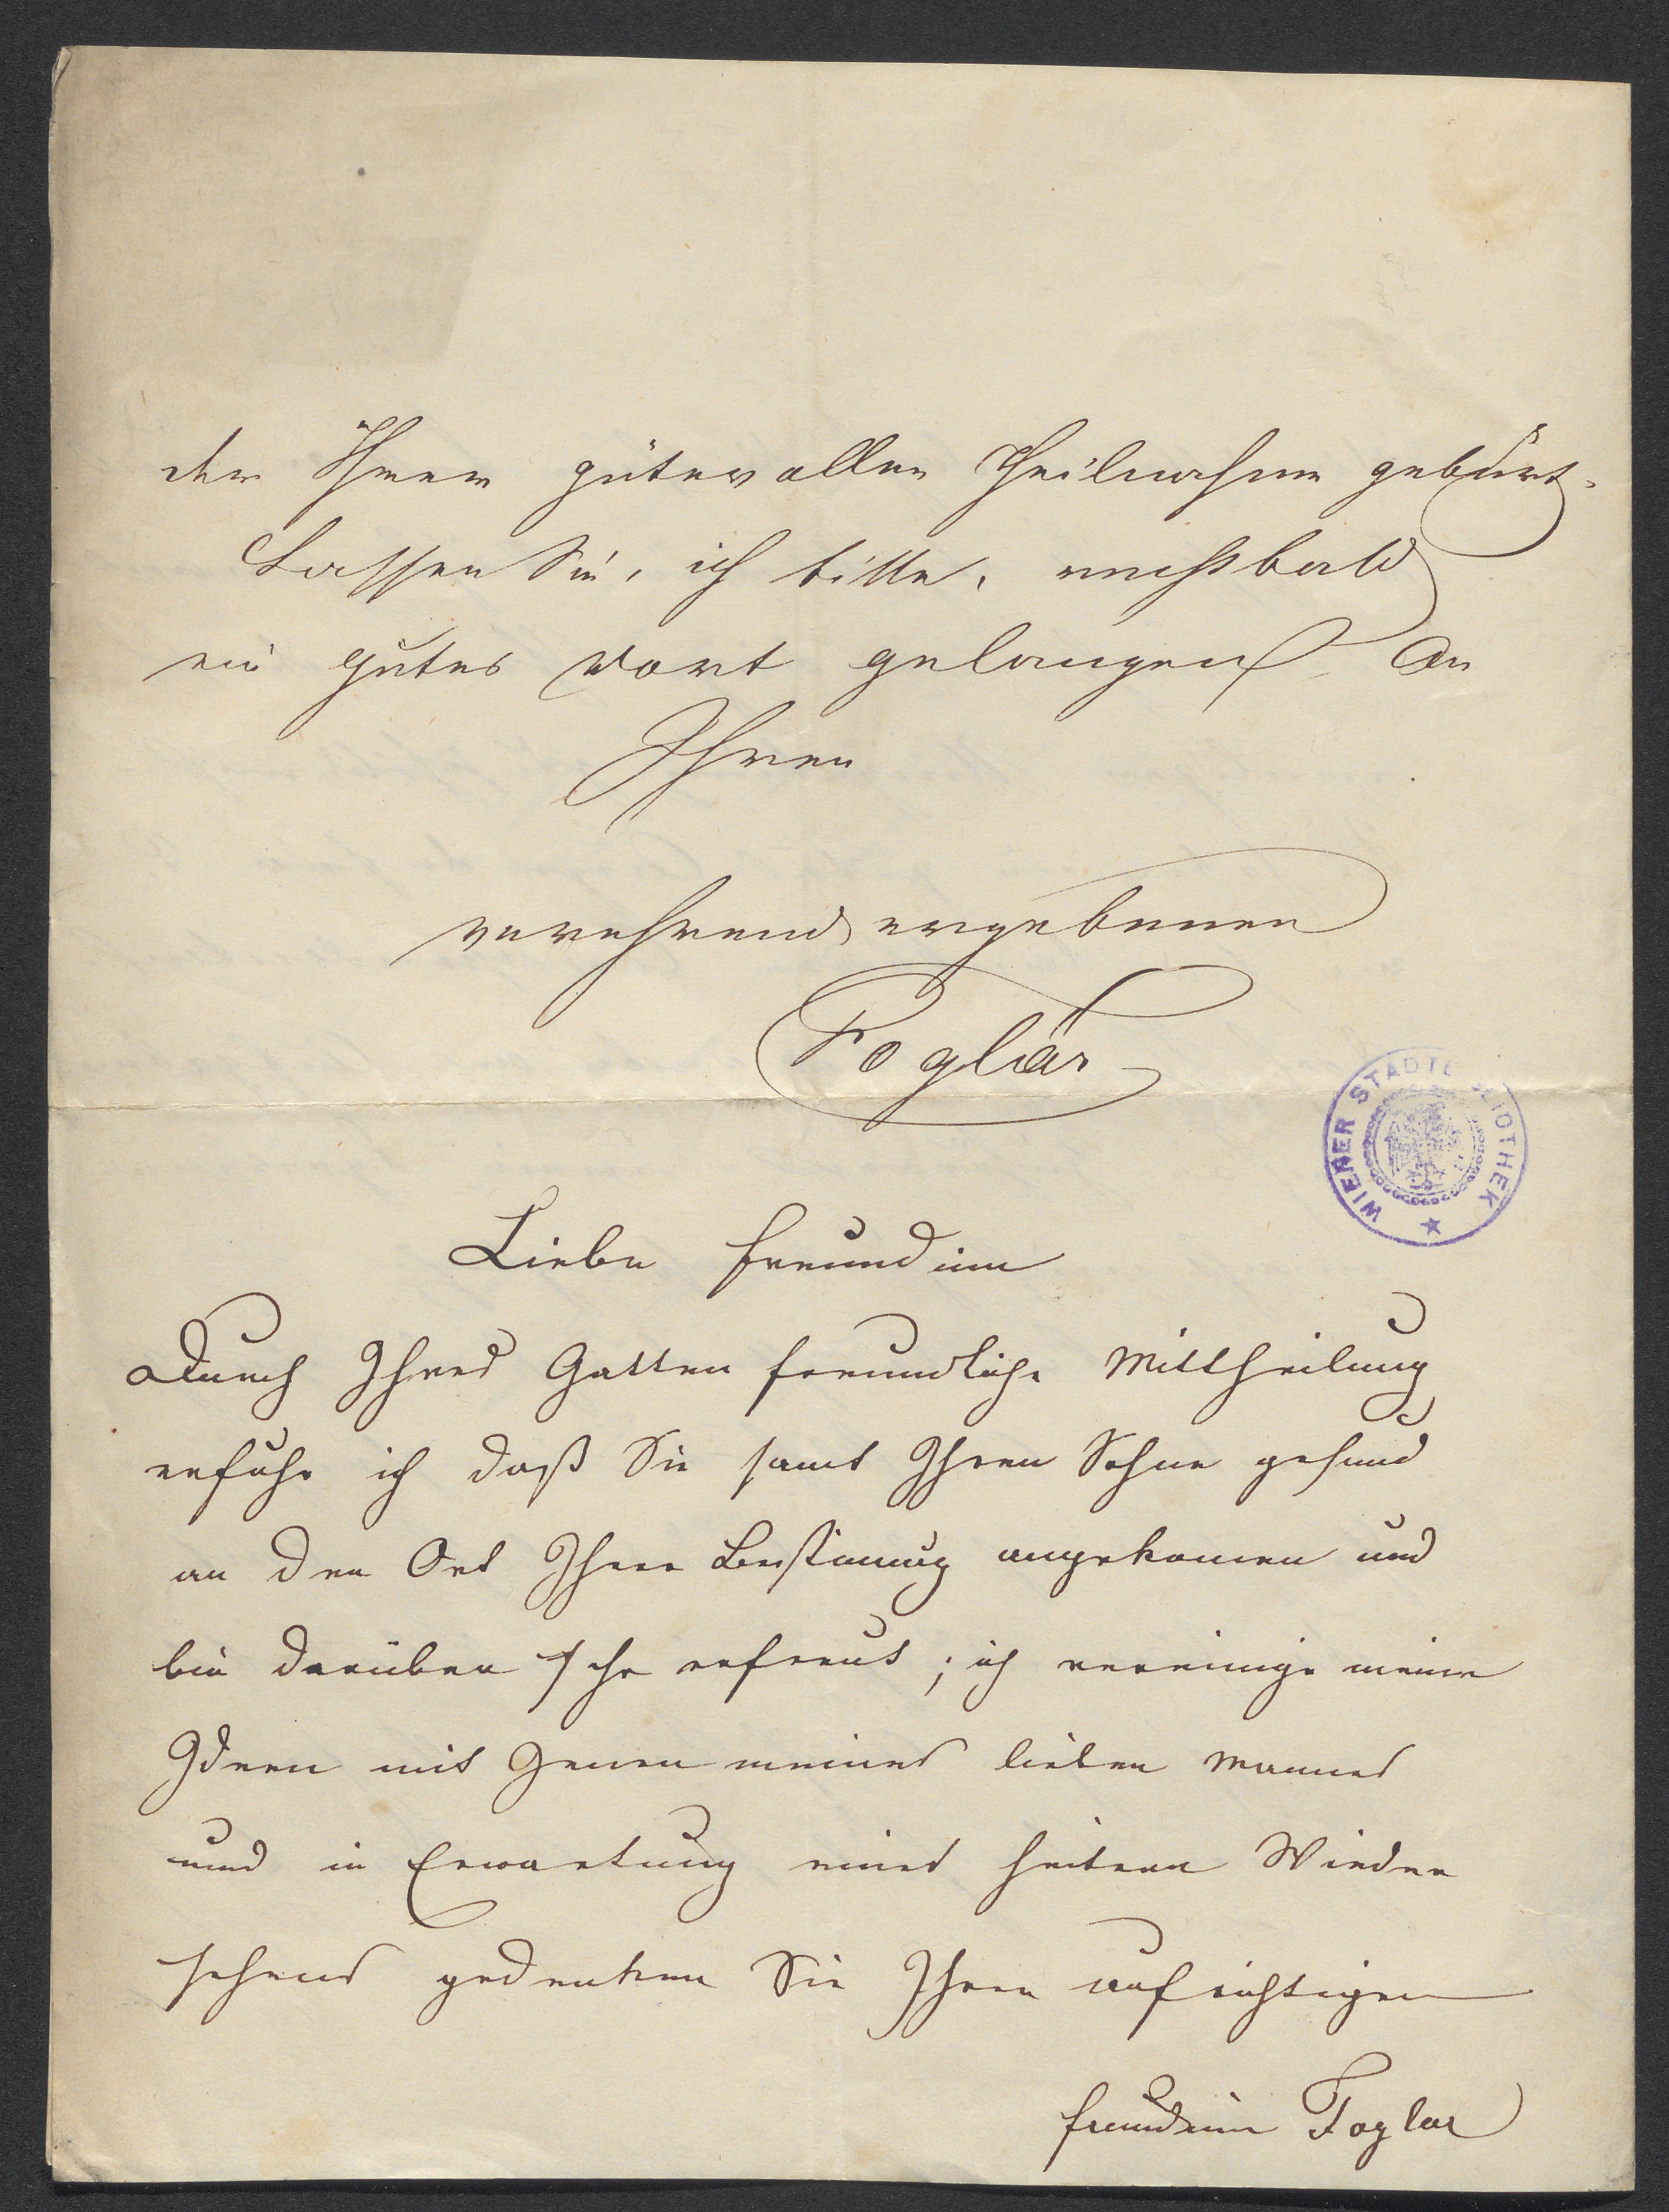 der Ihrer gütevollen Theilnahme gebürt.
Lassen Sie, ich bitte, rechtbald
ein gutes Wort gelangen an
Ihren
verehrend ergebenen
Foglár
WIENER STADTBIBLIOTHEK
Liebe Freundinn
Durch Ihres Gatten freundliche Mittheilung
erfuhr ich daß Sie samt Ihren Sohne gesund
an den Ort Ihrer Bestimung angekomen und
bin darüber sehr erfreut; ich vereinige meine
Ideen mit Jenen meines lieben Mannes
und in Erwartung eines heitern Wieder
sehens gedenken Sie Ihrer aufrichtigen
Freundinn Foglar